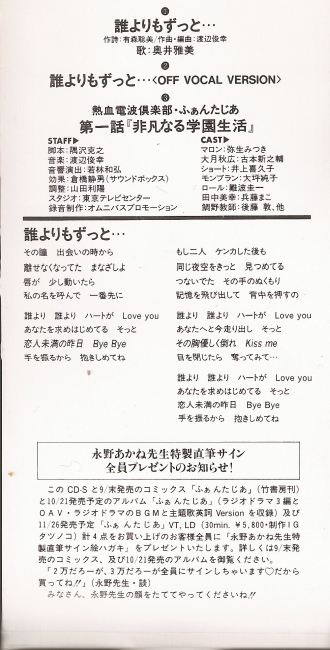 ❶
誰よりもずっと…
作詩：有森聡美/作曲・編曲：渡辺俊幸
歌：奥井雅美
❷
誰よりもずっと…〈OFF VOCAL VERSION〉
❸
熱血電波倶楽部・ふぁんたじあ
第一話『非凡なる学園生活』
STAFF▶
脚本：隅沢克之
音楽：渡辺俊幸
音響演出：若林和弘
効果：倉橋静男(サウンドボックス)
調整：山田利陽
スタジオ：東京テレビセンター
録音制作：オムニバスプロモーション
CAST▶
マロン：弥生みつき
大月秋広：古本新之輔
ショート：井上喜久子
モンブラン：大坪純子
ロール：難波圭一
田中美幸：兵藤まこ
鯛野教師：後藤 敦、他
誰よりもずっと…
その瞳　出会いの時から
離せなくなってた　まなざしよ
唇が　少し動いたら
私の名を呼んで　一番先に
誰より　誰より　ハートが　Love you
あなたを求めはじめてる　そっと
恋人未満の昨日　Bye Bye
手を振るから　抱きしめてね
もし二人　ケンカした後も
同じ夜空をきっと　見つめてる
つないでた　その手のぬくもり
記憶を飛び出して　背中を押すの
誰より　誰より　ハートが　Love you
あなたへと今走り出し　そっと
その胸優しく倒れ　Kiss me
目を閉じたら　奪ってみて…
誰より　誰より　ハートが　Love you
あなたを求めはじめてる　そっと
恋人未満の昨日　Bye Bye
手を振るから　抱きしめてね
永野あかね先生特製直筆サイン
全員プレゼントのお知らせ!
このCD-Sと9/末発売のコミックス「ふぁんたじあ」(竹書房刊)
と10/21発売予定のアルバム「ふぁんたじあ」(ラジオドラマ3編と
OAV・ラジオドラマのBGMと主題歌英詞Versionを収録)及び
11/26発売予定「ふぁんたじあ」VT, LD (30min. ￥5,800・制作IG
タツノコ) 計4点をお買い上げのお客様全員に「永野あかね先生特
製直筆サイン絵ハガキ」をプレゼントいたします。詳しくは9/末発
売のコミックス、及び10/21発売のアルバムを御覧ください。
「2万だろーが、3万だろーが全員にサインしちゃいます♡だから
買ってね!!」(永野先生・談)
みなさん、永野先生の顔をたててやってくださいね!!